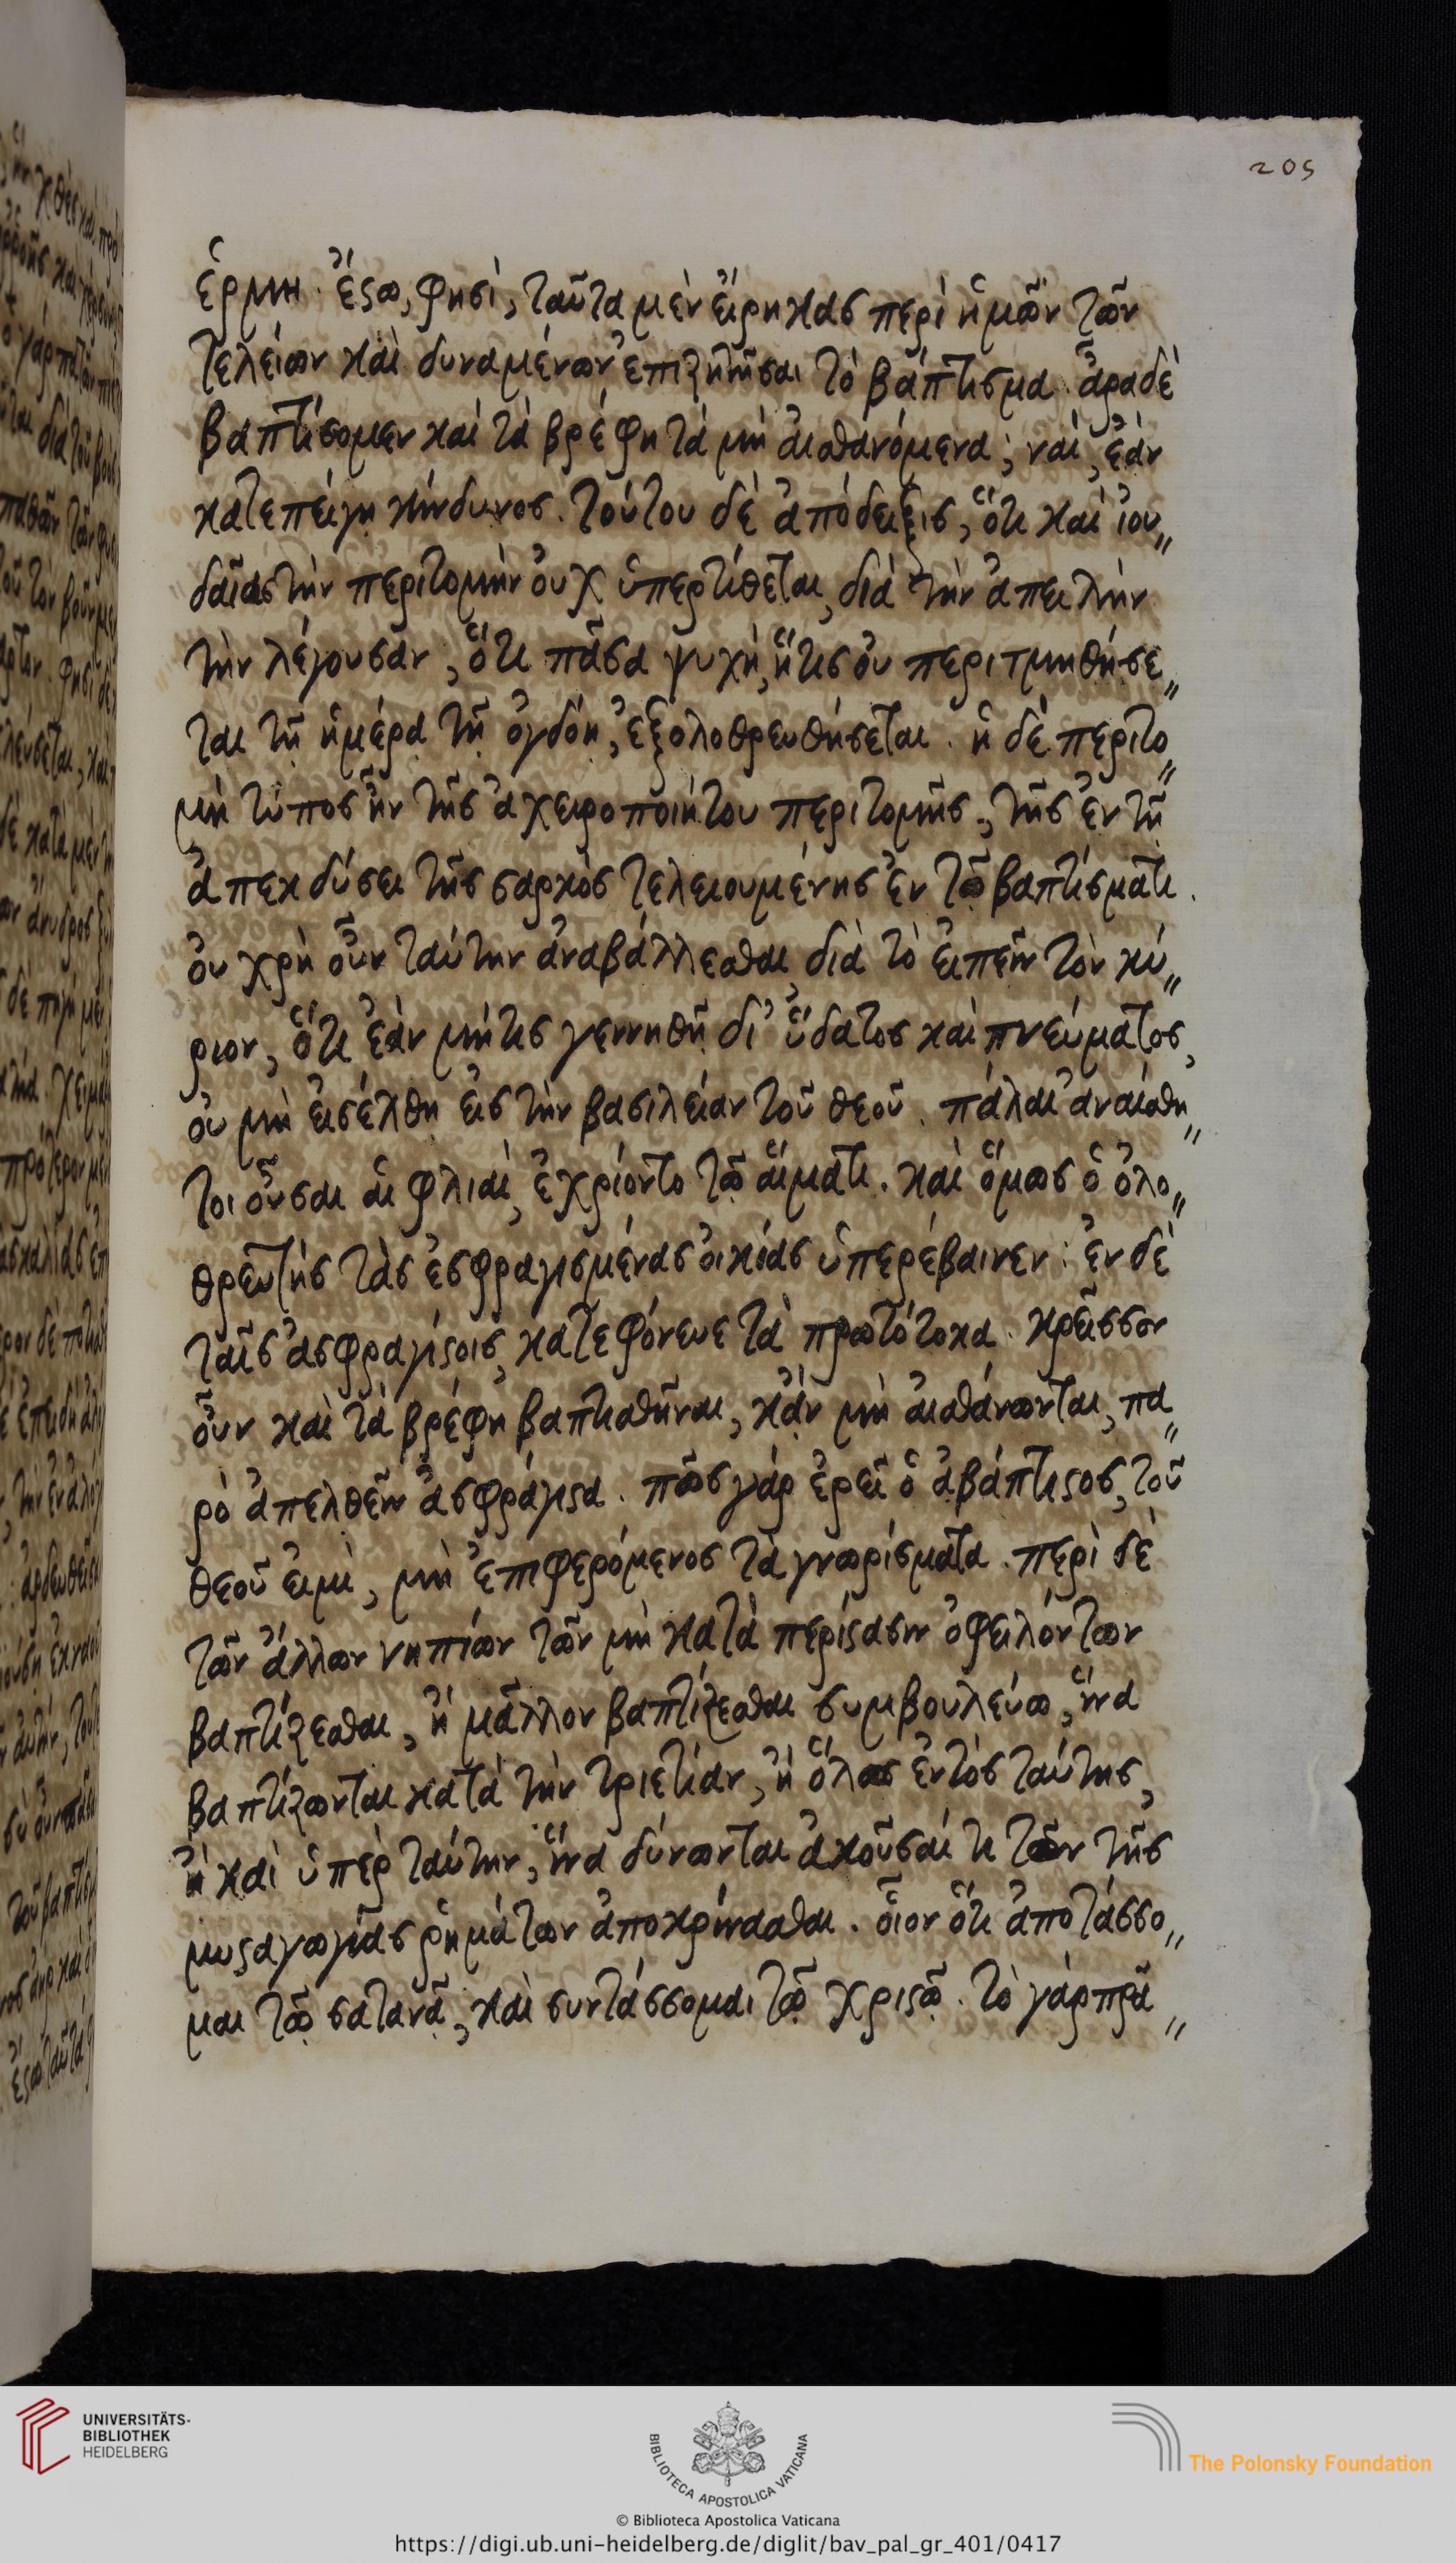 205
ἑρμη· ἔστω, φησὶ, ταῦτα μὲν εἴρηκας περὶ ἡμῶν τῶν
τελείων καὶ δυναμένων ἐπιζητῆσαι τὸ βάπτισμα· ἆρα δὲ
βαπτίσομεν καὶ τὰ βρέφη τὰ μὴ αἰσθανόμενα; ναὶ, ἐὰν
κατεπείγῃ κίνδυνος. τούτου δὲ ἀπόδειξις, ὅτι καὶ ἰου〃
δαίας τὴν περιτομὴν οὐχ ὑπερτίθεται, διὰ τὴν ἀπειλὴν
τὴν λέγουσαν, ὅτι πᾶσα ψυχὴ, ἥτις οὐ περιτμηθήσε〃
ται τῇ ἡμέρᾳ τῇ ὀγδόῃ, ἐξολοθρευθήσεται. ἡ δὲ περιτο〃
μὴ τύπος ἦν τῆς ἀχειροποιήτου περιτομῆς, τῆς ἐν τῇ
ἀπεκδύσει τῆς σαρκὸς τελειουμένης ἐν τῷ βαπτίσματι.
οὐ χρὴ οὖν ταύτην ἀναβάλλεσθαι, διὰ τὸ εἰπεῖν τὸν κύ〃
ριον, ὅτι ἐὰν μήτις γεννηθῇ δι' ὕδατος καὶ πνεύματος,
οὐ μὴ εἰσέλθῃ εἰς τὴν βασιλείαν τοῦ θεοῦ. πάλαι ἀναίσθη〃
τοι οὖσαι αἱ φλιαὶ, ἐχρίοντο τῷ αἵματι. καὶ ὅμως ὁ ὀλο〃
θρευτὴς τὰς ἐσφραγισμένας οἰκίας ὑπερέβαινεν· ἐν δὲ
ταῖς ἀσφραγίστοις, κατεφόνευε τὰ πρωτότοκα. κρεῖσσον
οὖν καὶ τὰ βρέφη βαπτισθῆναι, κἂν μὴ αἰσθάνωνται, πα〃
ρὸ ἀπελθεῖν ἀσφράγιστα. πῶς γὰρ ἐρεῖ ὁ ἀβάπτιστος, τοῦ
θεοῦ εἰμὶ, μὴ ἐπιφερόμενος τὰ γνωρίσματα. περὶ δὲ
τῶν ἄλλων νηπίων τῶν μὴ κατὰ περίστασιν ὀφειλόντων
βαπτίζεσθαι, ἢ μᾶλλον βαπτίζεσθαι συμβουλεύω, ἵνα
βαπτίζωνται κατὰ τὴν τριετίαν, ἢ ὅλως ἐντὸς ταύτης,
ἢ καὶ ὑπὲρ ταύτην, ἵνα δύνωνται ἀκοῦσαί τι τῶν τῆς
μυσταγωγίας ῥημάτων ἀποκρίνασθαι. οἷον ὅτι ἀποτάσσο〃
μαι τῷ σατανᾷ, καὶ συντάσσομαι τῷ χριστῷ. τὸ γὰρ πρᾶ〃
UNIVERSITÄTS-
BIBLIOTHEK
HEIDELBERG
BIBLIOTECA APOSTOLICA VATICANA
© Biblioteca Apostolica Vaticana
The Polonsky Foundation
https://digi.ub.uni-heidelberg.de/diglit/bav_pal_gr_401/0417